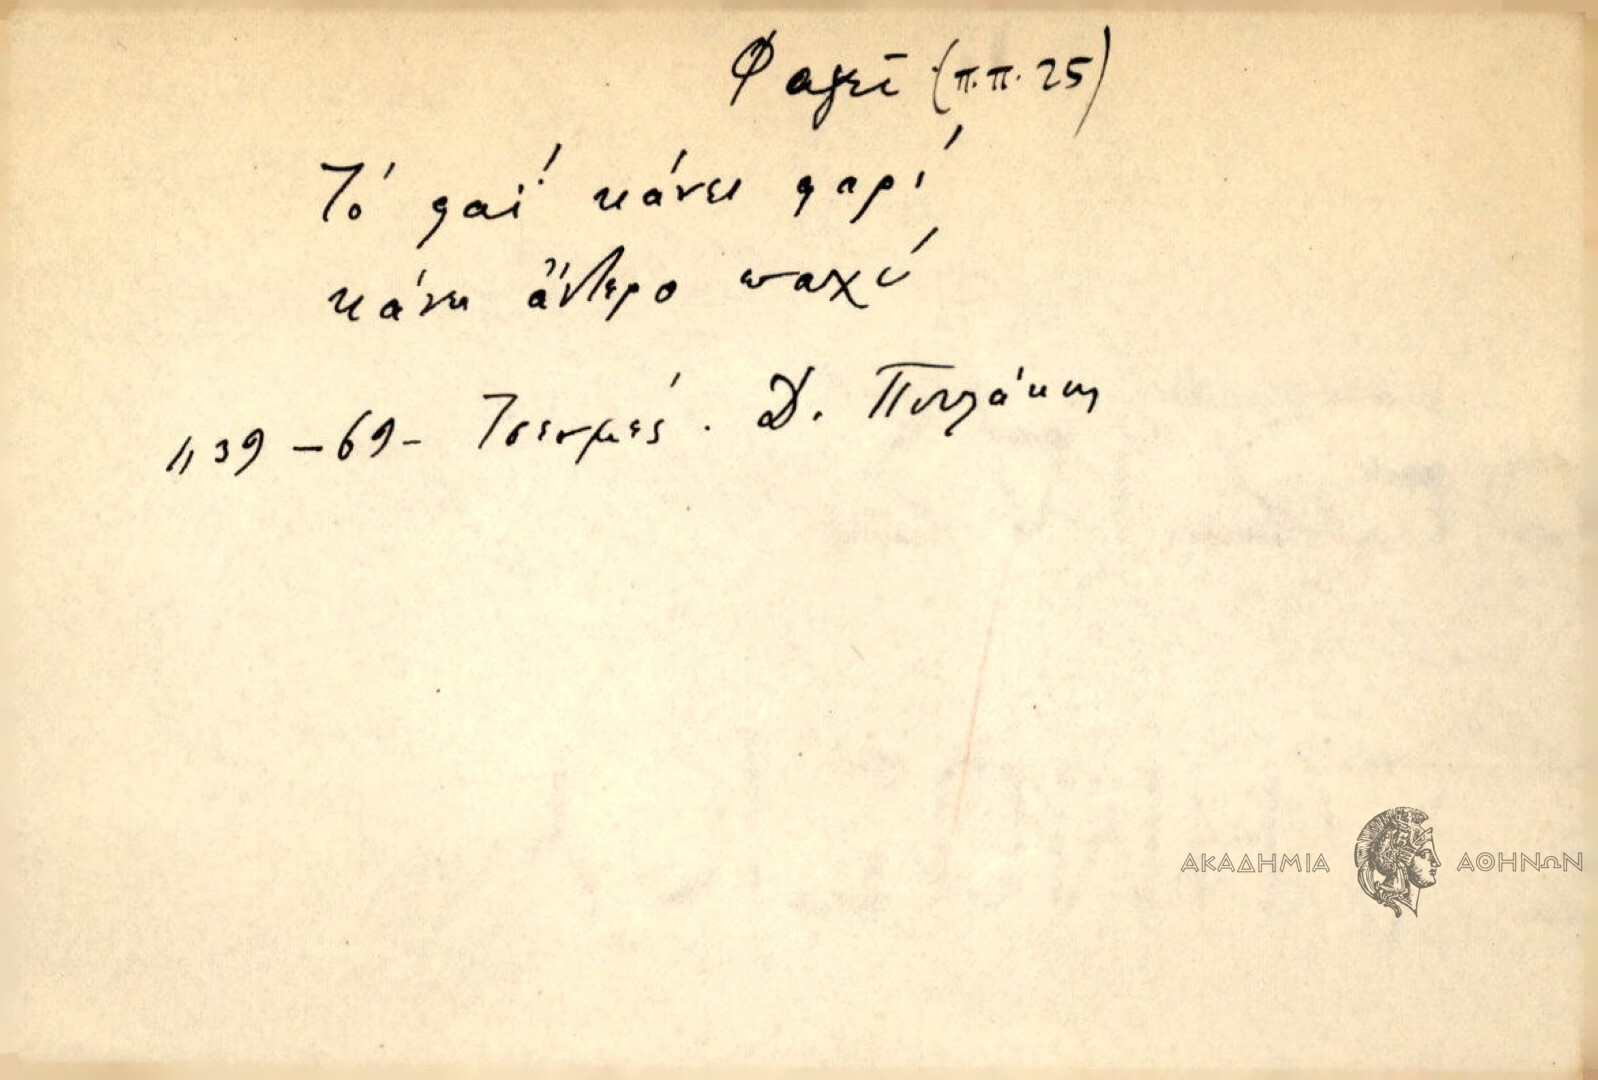 Φαγεῖ (π.π. 25)
Τό φαΐ κάνει φαρί
κάνει ἄντερο παχύ
1139-69- Τσεσμές. Δ. Πουλάκης
ΑΚΑΔΗΜΙΑ ΑΘΗΝΩΝ